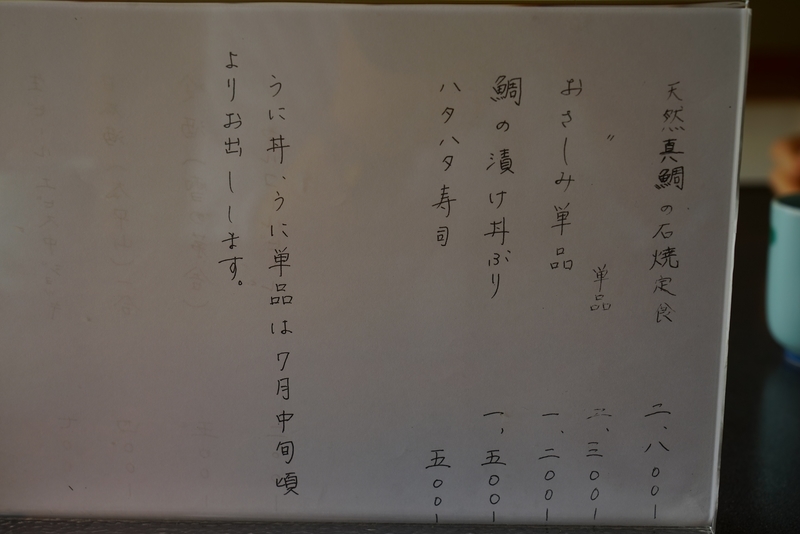 天然真鯛の石焼定食 二、八〇〇ー
〃 単品 二、三〇〇ー
おさしみ単品 一、二〇〇ー
鯛の漬け丼ぶり 一、五〇〇ー
ハタハタ寿司 五〇〇ー
うに丼、うに単品は7月中旬頃
よりお出しします。